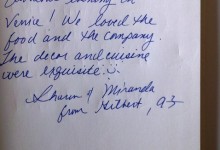 evening in
Venice! We loved the
food and the company.
The decor and cuisine
were exquisite
Sharon & Miranda
from Gilbert, az